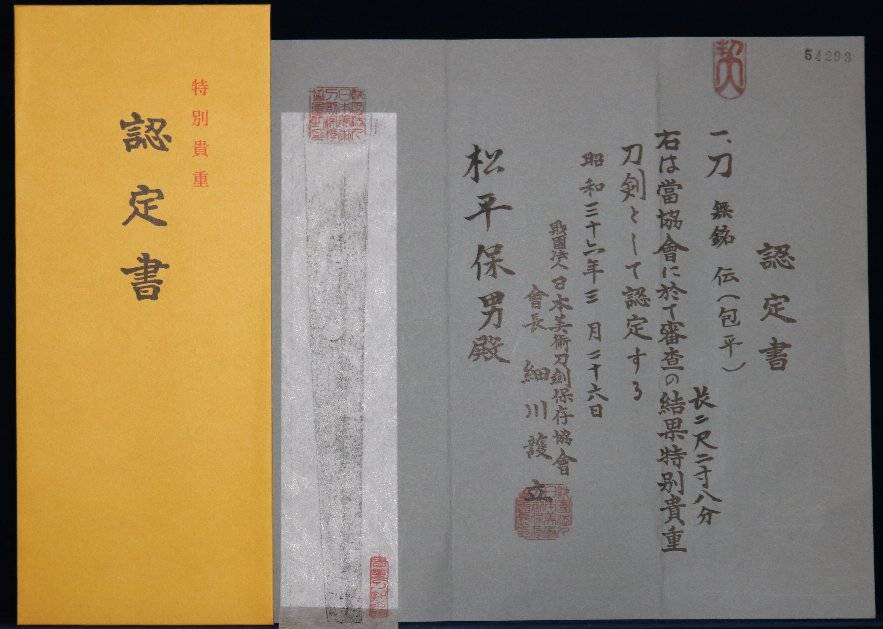 特別貴重
認定書
54293
認定書
一、刀 無銘 伝(包平)
長二尺二寸八分
右は當協會に於て審査の結果特別貴重
刀劍として認定する
昭和三十六年三月二十六日
財團法人日本美術刀劍保存協會
會長 細川護立
松平保男殿